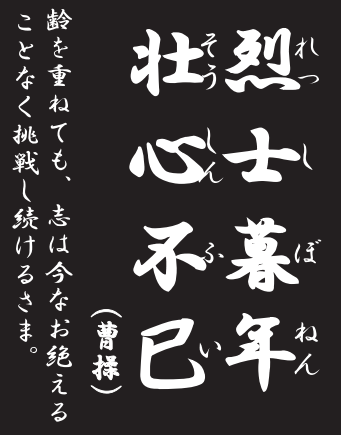 烈士暮年
れつしぼねん
壮心不已
そうしんふい
（曹操）
齢を重ねても、志は今なお絶える
ことなく挑戦し続けるさま。